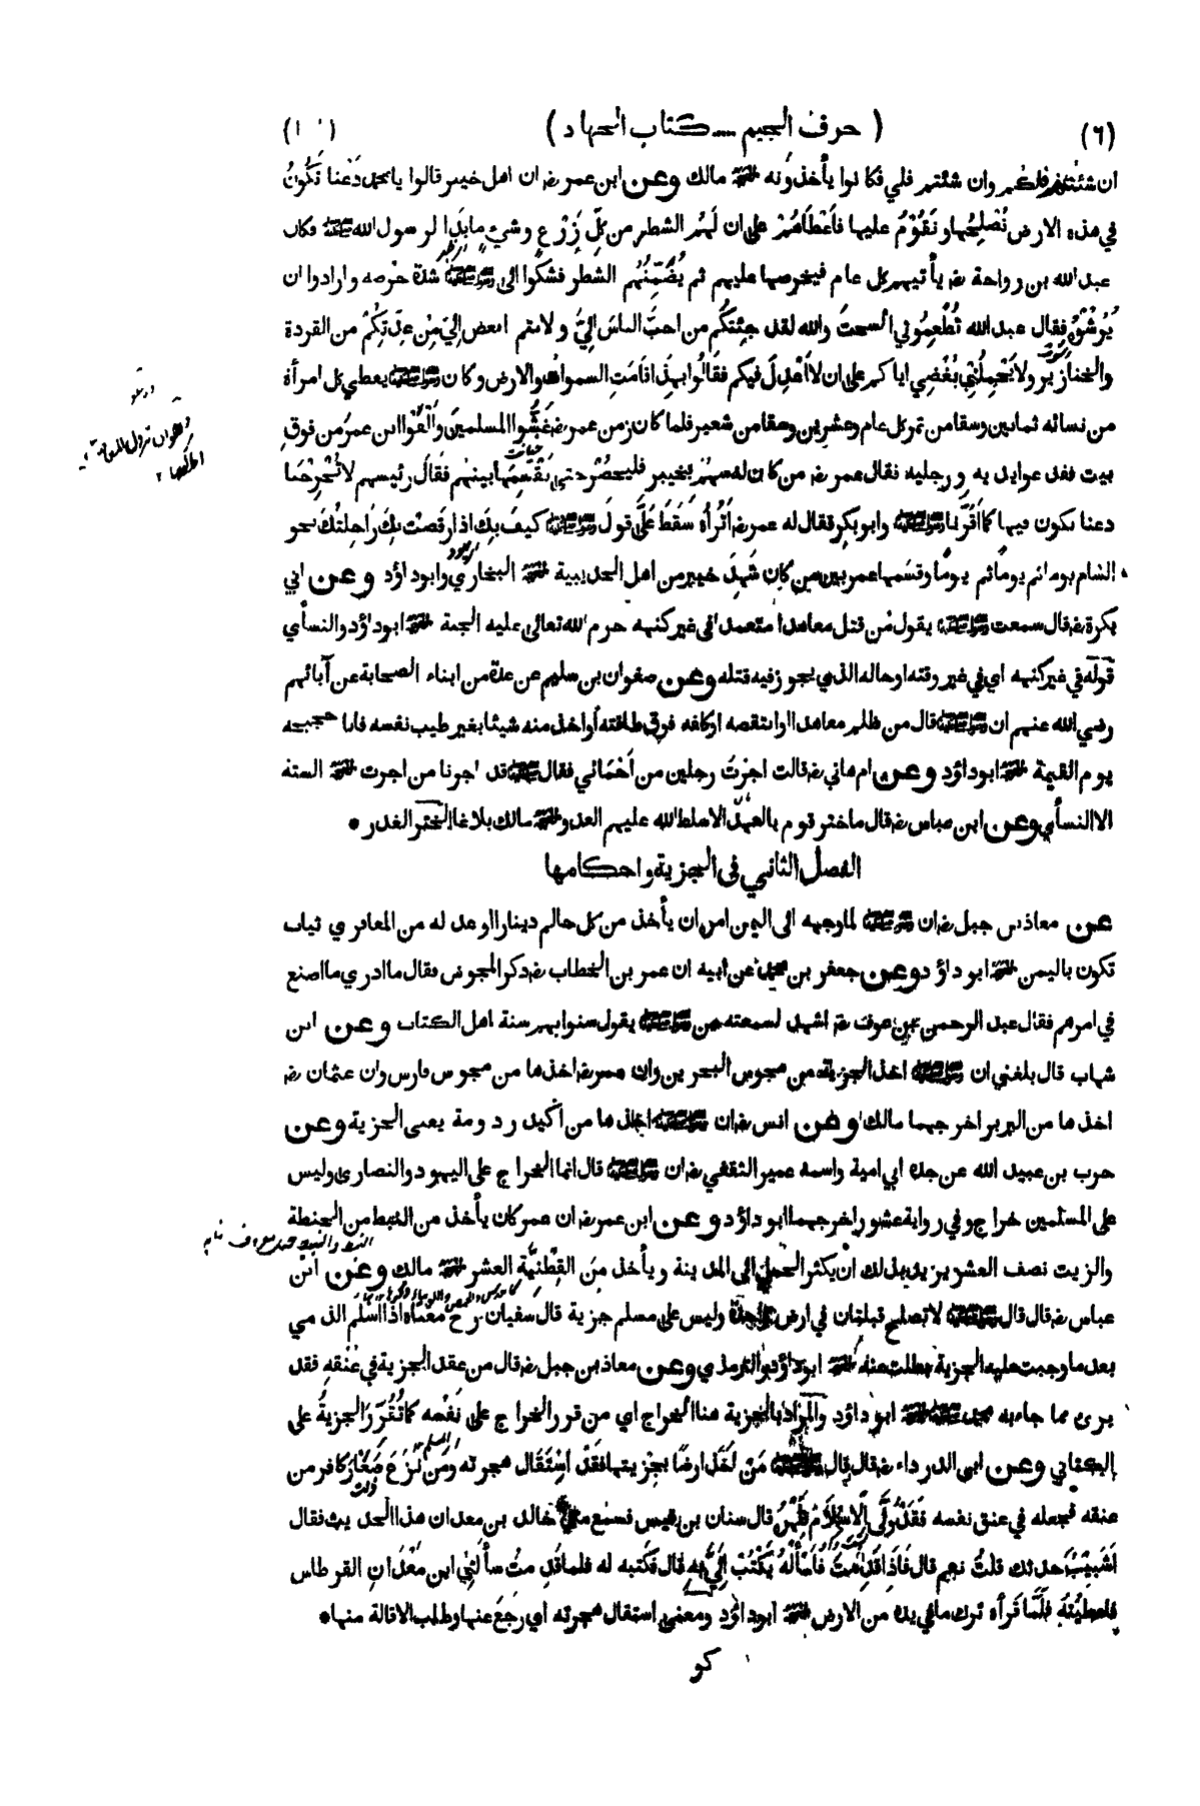 (٦) ( حرف الجيم — كتاب الجهاد ) (١٠)
ان شئتم فلكم وان شئتم فلي فكانوا يأخذونه مالك وعن ابن عمر رض ان اهل خيبر قالوا يا محمد دَعْنا نَكُونُ
في هذه الارض نُصْلِحُها ونَقُوْمُ عليها فَأَعْطَاهُمْ على ان لَهُمُ الشطر من كلِّ زَرْعٍ وشيءٍ ما بَدَا لرسول الله ﷺ فكان
عبد الله بن رواحة رض يأتيهم كل عام فيخرصها عليهم ثم يُضَمِّنُهُم الشطر فشكَوا الى ﷺ شدة خرصه وارادوا ان
يُرشُوْهُ فقال عبد الله تُطْعِمُوني السحتَ والله لقد جِئتكُم من احبِّ الناسِ اليَّ ولانتم ابغض اليَّ مِنْ عِدّتِكُمْ من القردة
والخنازير ولا يَحْمِلُنِي بُغْضِي اياكم على ان لا أَعْدِلَ فيكم فقَالُوا بهذا قَامَتِ السمواتُ والارض وكان ﷺ يعطي كل امرأة
من نسائه ثمانين وسقا من تمر كل عام وعشرين وسقا من شعير فلما كان زمن عمر رض غَشُّوا المسلمينَ وأَلْقَوْا ابن عمرَ من فوقِ
بيت ففدعوا يديه ورجليه فقال عمر رض من كان له سهمٌ بخيبر فليحضُرْ حتى نَقْسِمَها بينهُم فقال رئيسهم لا تُخْرِجْنَا
دعنا نكون فيها كما أَقَرَّنا ﷺ وابو بكر فقال له عمر رض أَتُراهُ سَقَطَ عَلَيَّ قول ﷺ كيفَ بِكَ اذا رقصتْ بِكَ رَاحِلتُكَ نحو
الشام يوما ثم يوماً ثم يوماً وقسَمها عمر بين من كان شَهِدَ خيبر من اهل الحديبية البخاري وابو داؤد وعن ابي
بكرة رض قال سمعت ﷺ يقول مَن قتل معاهدا متعمدا في غير كنهه حرم الله تعالى عليه الجنة ابو داؤد والنسائي
قوله في غير كنهه اي في غير وقته او حاله الذي يجوز فيه قتله وعن صفوان بن سليم عن عدة من ابناء الصحابة عن آبائهم
رضي الله عنهم ان ﷺ قال من ظلم معاهدا او انتقصه او كلفه فوق طاقته او اخذ منه شيئا بغير طيب نفسه فانا حجيجه
يوم القيمة ابو داؤد وعن ام هاني رض قالت اجرْتُ رجلين من أحْمَائي فقال ﷺ قد اجرنا من اجرت الستة
الا النسأي وعن ابن عباس رض قال ما ختر قوم بالعهد الا سلط الله عليهم العدو مالك بلاغا الختر الغدر •
الفصل الثاني في الجزية واحكامها
عن معاذ بن جبل رض ان ﷺ لما وجهه الى اليمن امره ان يأخذ من كل حالم دينارا او عدله من المعافري ثياب
تكون باليمن ابو داؤد وعن جعفر بن محمد عن ابيه ان عمر بن الخطاب رض ذكر المجوس فقال ما ادري ما اصنع
في امرهم فقال عبد الرحمن بن عوف رض اشهد لسمعته من ﷺ يقول سنوا بهم سنة اهل الكتاب وعن ابن
شهاب قال بلغني ان ﷺ اخذ الجزية من مجوس البحرين وان عمر رض اخذها من مجوس فارس وان عثمان رض
اخذها من البربر اخرجهما مالك وعن انس رض ان ﷺ اخذها من اكيدر دومة يعنى الجزية وعن
حرب بن عبيد الله عن جده ابي امية واسمه عمير الثقفي رض ان ﷺ قال انما الخراج على اليهود والنصارى وليس
على المسلمين خراج وفي رواية عشور اخرجهما ابو داؤد وعن ابن عمر رض ان عمر كان يأخذ من النبط من الحنطة
والزيت نصف العشر يريد بذلك أن يكثر الحمل الى المدينة ويأخذ من القِطْنيَّة العشر مالك وعن ابن
عباس رض قال قال ﷺ لا تصلح قبلتان في ارض واحدة وليس على مسلم جزية قال سفيان رح معناه اذا اسلم الذمي
بعد ما وجبت عليه الجزية بطلت عنه ابو داؤد والترمذي وعن معاذ بن جبل رض قال من عقد الجزية في عُنقه فقد
برئ مما جاء به محمد ﷺ ابو داؤد والمراد بالجزية هنا الخراج اي من قرر الخراج على نفسه كما تُقَرَّرُ الجزيةُ على
الكتابي وعن ابي الدرداء رض قال قال ﷺ مَنْ اخَذَ ارضًا بِجِزْيتها فَقَدْ اسْتَقَال هجرته ومَن نزَعَ صَغَارَ كافر من
عنقه فجعله في عنق نفسه فَقَدْ وَلَّى الاسْلامَ ظَهْرَهُ قال سنان بن قيس فسمع مني خالد بن معدان هذا الحديث فقال
أَشَبِيْبٌ حدثك قلتُ نعم قال فَاذَا قَدِمْتَ فَاسْأَلْهُ يَكْتُبْ اِلَيَّ به قال فكتبه له فلما قدِمتُ سألَنِي ابن مَعْدَانِ القرطاس
فاعطيتُه فلَمَّا قَرأه ترك ما في يده من الارض ابو داؤد ومعنى استقال هجرته اي رجَعَ عنها وطلب الاقالة منها•
كو